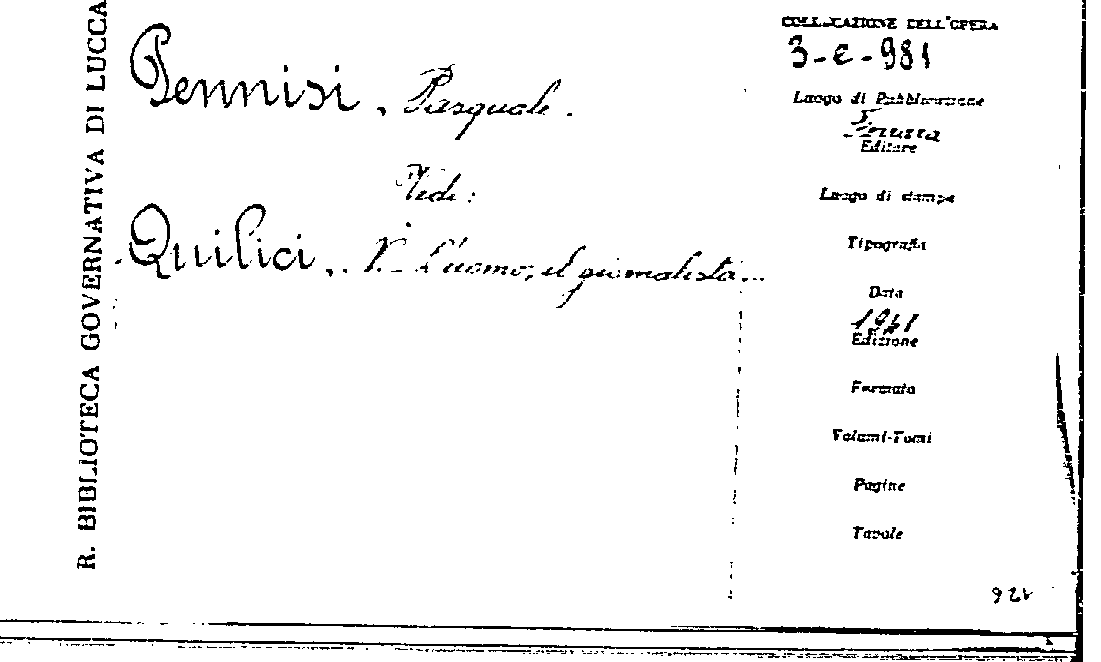 R. BIBLIOTECA GOVERNATIVA DI LUCCA
Pennisi, Pasquale.
Vedi:
Quilici, N. L'uomo, il giornalista...
COLLOCAZIONE DELL'OPERA
3-e-981
Luogo di Pubblicazione
Ferrara
Editore
Luogo di stampa
Tipografia
Data
1941
Edizione
Formato
Volumi-Tomi
Pagine
Tavole